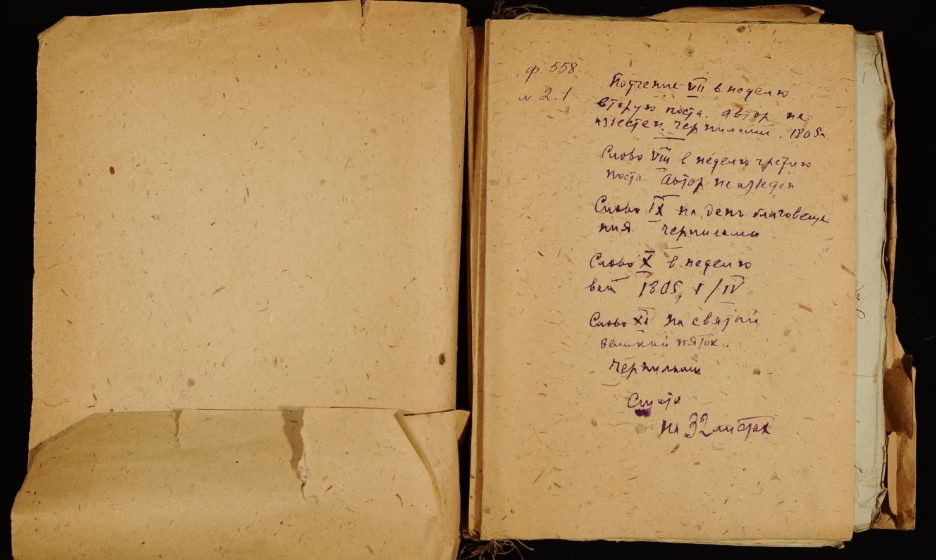 ф. 558.
№ 2.1
Поучение VII в неделю
вторую поста. автор не
известен. чернилами. 1805г.
Слово VIII в неделю третию
поста. Автор неизвестен
Слово IX на день благовеще
ния чернилами
Слово X в неделю
ваий 1805,
Слово XI на святый
великий пяток.
чернилами
на 32 листах